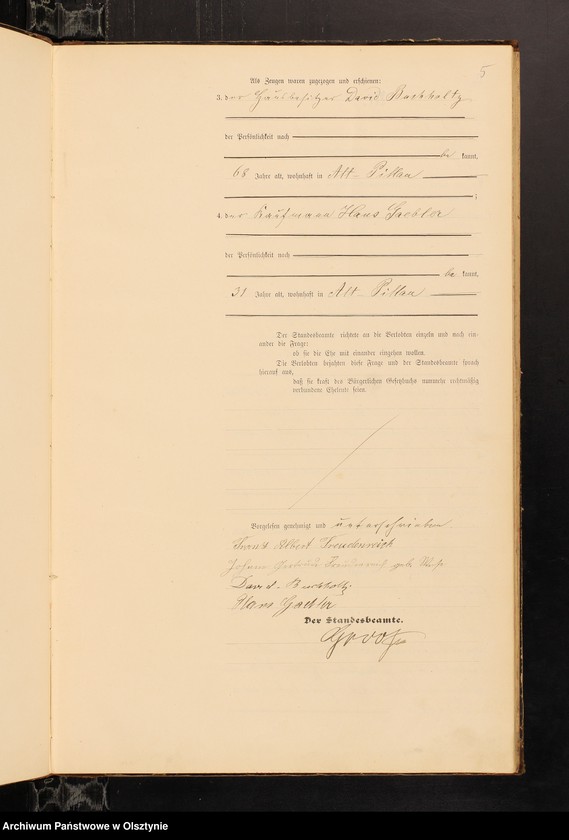 5
Als Zeugen waren zugezogen und erschienen:
3. der Hausbesitzer David Buchholtz
der Persönlichkeit nach
be kannt,
68 Jahre alt, wohnhaft in Alt-Pillau
;
4. der Kaufmann Hans Gaebler
der Persönlichkeit nach
be kannt,
31 Jahre alt, wohnhaft in Alt-Pillau
Der Standesbeamte richtete an die Verlobten einzeln und nach ein-
ander die Frage:
ob sie die Ehe mit einander eingehen wollen.
Die Verlobten bejahten diese Frage und der Standesbeamte sprach
hierauf aus,
daß sie kraft des Bürgerlichen Gesetzbuchs nunmehr rechtmäßig
verbundene Eheleute seien.
Vorgelesen, genehmigt und unterschrieben.
Franz Albert Freudenreich
Gertrud Freudenreich geb.
David Buchholtz
Hans Gaebler
Der Standesbeamte.
Archiwum Państwowe w Olsztynie